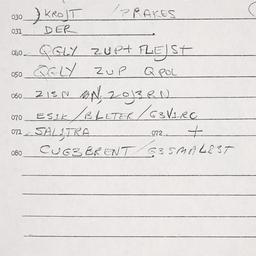 030 )KROJT /PRAKES
031 DER
040 QGLY ZUP+ FLEJS+
050 QGLY ZUP QPOL
060 ZISN AN, ZOJERN
070 ESIK/BLETER/G3VIRC
071 SALJTRA 072 +
080 CUG3BRENT/G3SMALEST